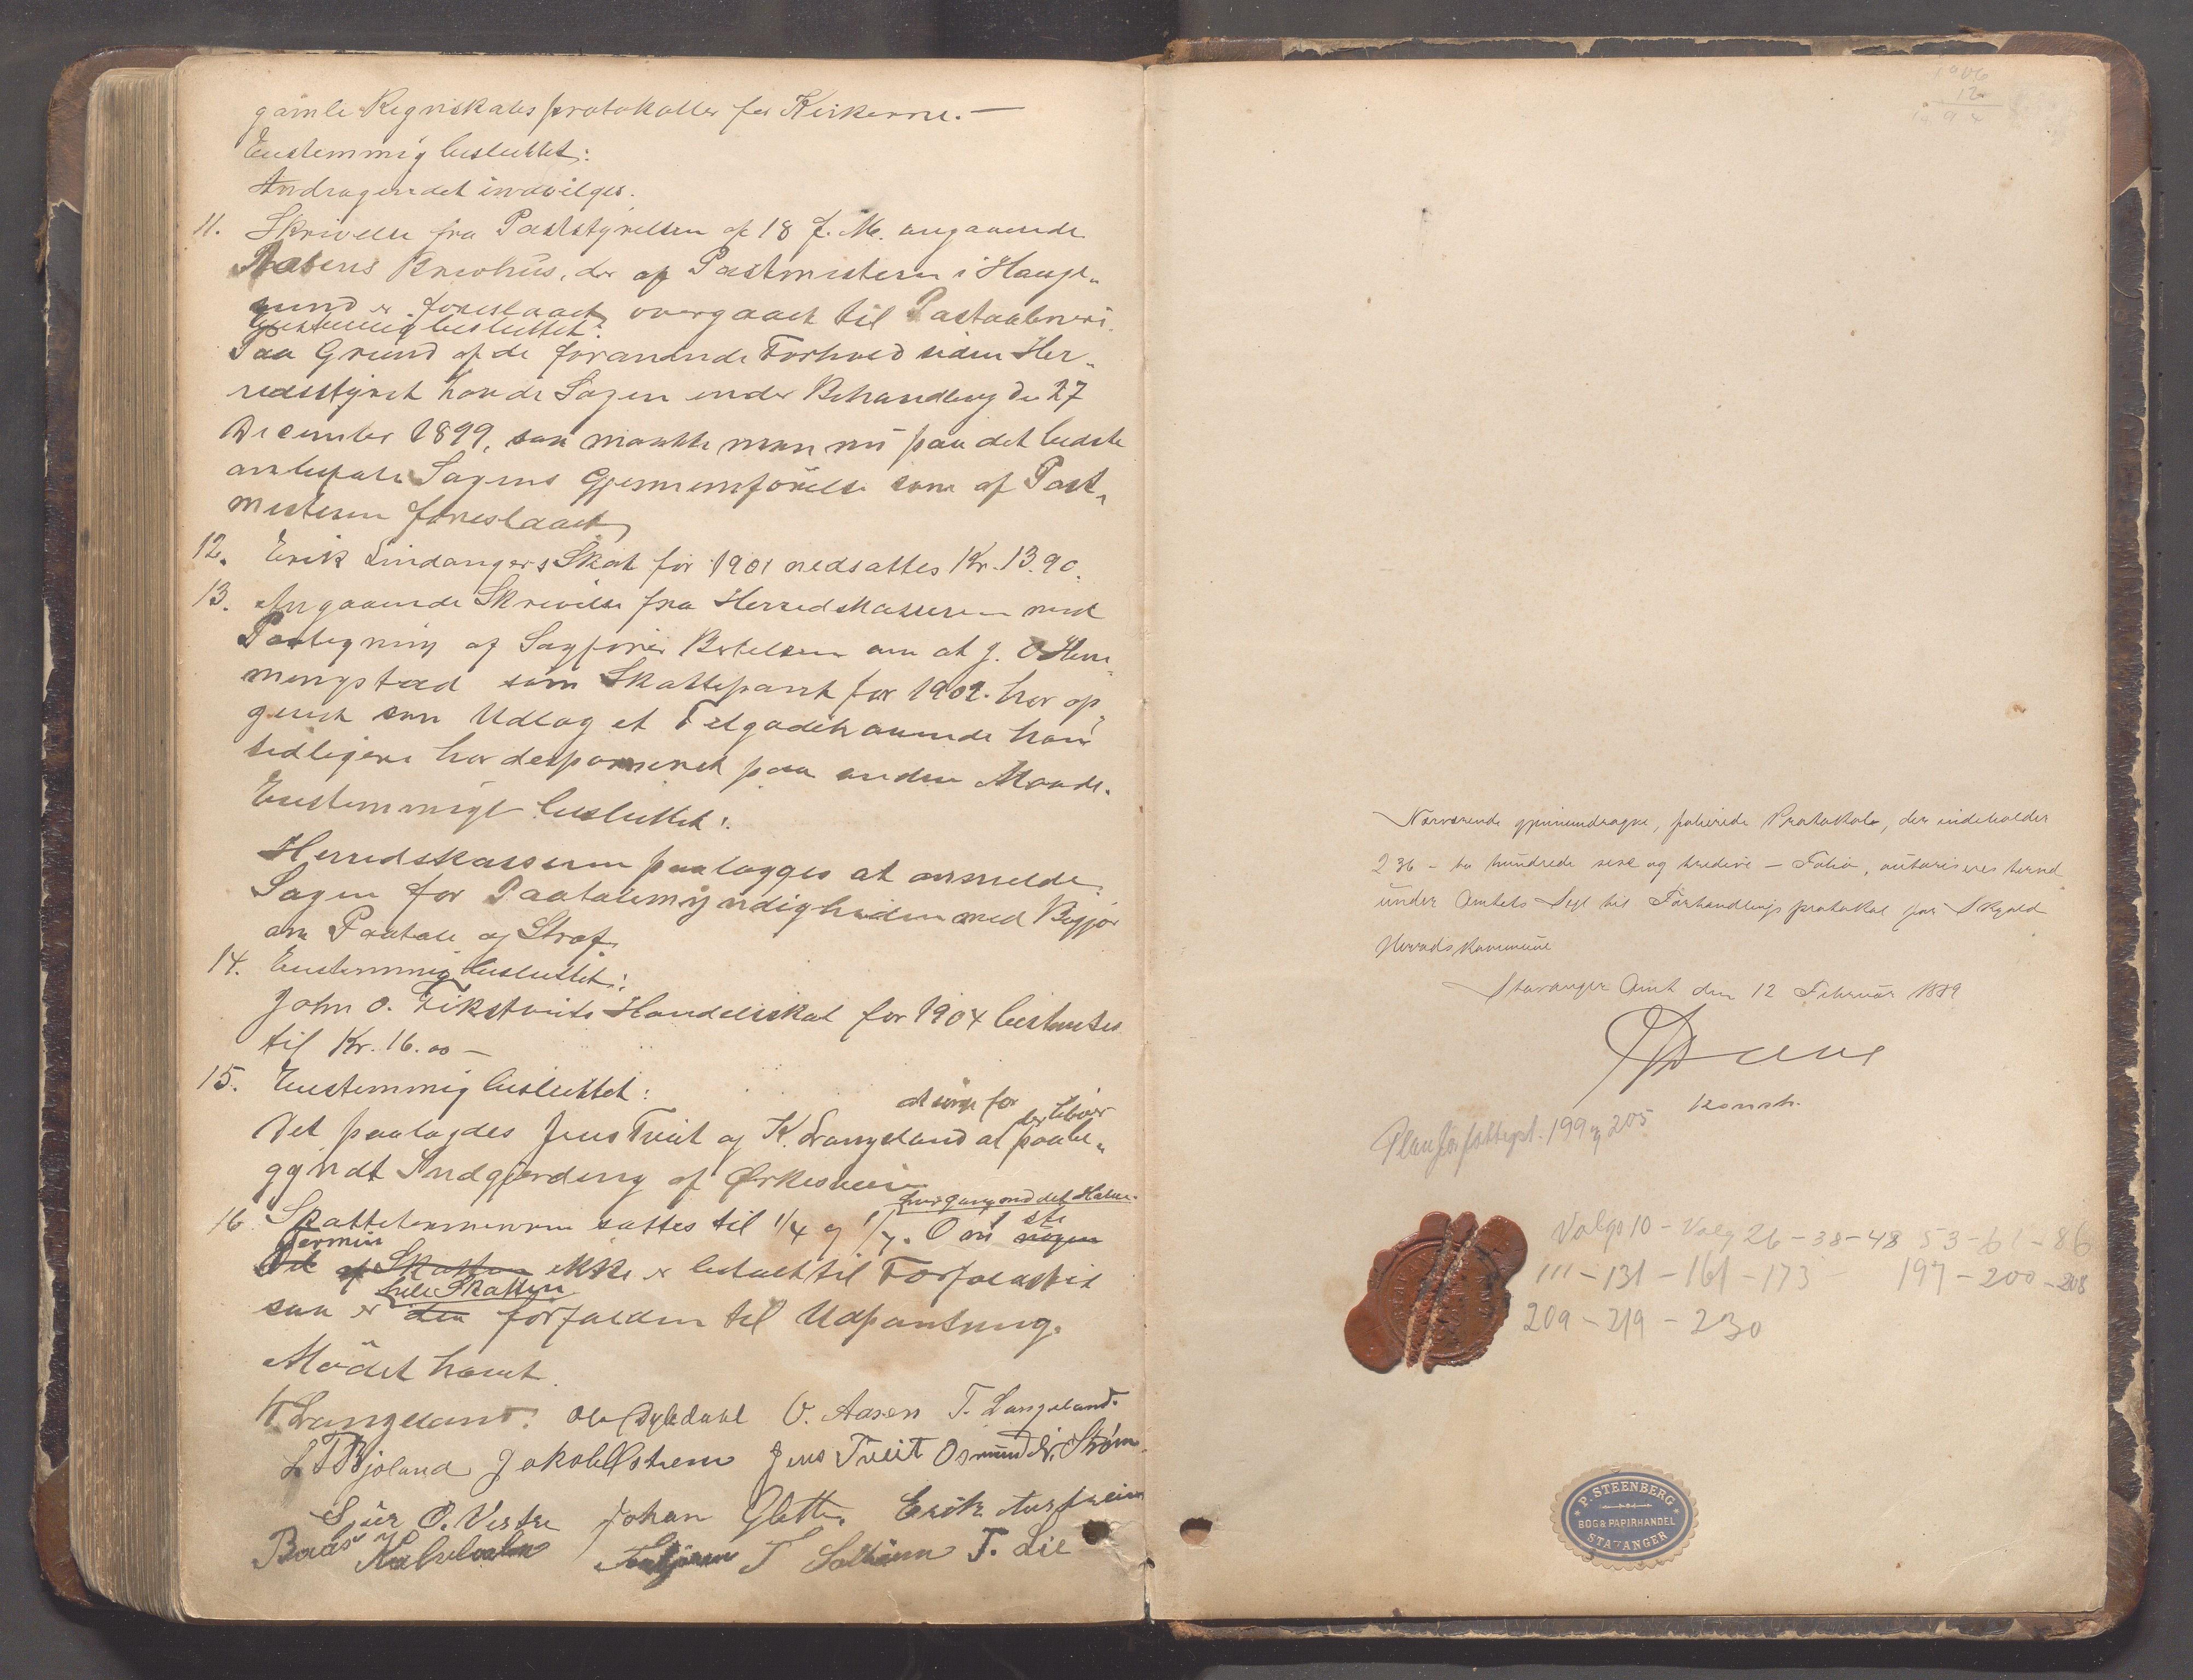 gamle Regnskabsprotokoller for Kirkerne. —
Enstemmig besluttet:
Andragendet indvilges.
11. Skrivelse fra Poststyrelsen af 18 f. M. angaaende
Brevhus, der af Postmesteren i Hauge-
sund er foreslaaet overgaaet til Postaabneri.
Enstemmig besluttet:
Paa Grund af de forandrede Forhold siden Her-
redsstyret havde Sagen under Behandling de 27
December 1899, saa maatte man nu paa det bedste
anbefale Sagens Gjennemförelse som af Post-
mesteren foreslaaet
12. Erik Lindangers Skat for 1901 nedsattes Kr. 13.90.
13. Angaaende Skrivelse fra Herredskasseren med
Paategning af Sagförer Bertelsen om at J. O. Hem-
mingstad som Skattepant for 1902 har op-
givet som Udlæg et Tilgodehavende han
tidligere har desponeret paa anden Maade.
Enstemmigt besluttet:
Herredskasseren paalægges at anmelde
Sagen for Paatalemyndigheden med Begjær
om Paatale og Straf.
14. Enstemmig besluttet:
John O. Fikstveits Handelsskat for 1904 bestemtes
til Kr. 16.00 —
15. Enstemmig besluttet:
at sørge for
der bliver
Det paalagdes Jens Tveit og K. Langeland at paabe-
gyndt Indgjerding af Ørkesveien
16. Skatteterminerne sattes til 1/4 og 1/7. Om 1ste nogen
Termin
Del af Skatten ikke er betalt til Forfaldstid
hele Skatten
saa er den forfalden til Udpantning.
Mödet hævet.
K Langeland. Ole Dybdahl O. Aasen T. Langeland.
L T Bjoland Jakob Østrem Jens Tveit Osmund N. Strøm
Sjur O. Vestre Johan Glette. Erik Austrheim
Baard Kalvevoln T Solheim T. Lie
1906
12
Nærværende gjennemdragne, folierede Protokol, der indeholder
236 — to hundrede sex og tredive — Folier, autoriseres herved
under Amtets Segl til Forhandlingsprotokol for Skjold
Herredskommune
Stavanger Amt den 12 Februar 1889
Konst.
199 og 205
Valgs 10 - Valg 26 - 38 - 48 53 - 61 - 86
111 - 131 - 161 - 173 - 197 - 200 - 208
209 - 219 - 230
P. STEENBERG
BOG & PAPIRHANDEL
STAVANGER